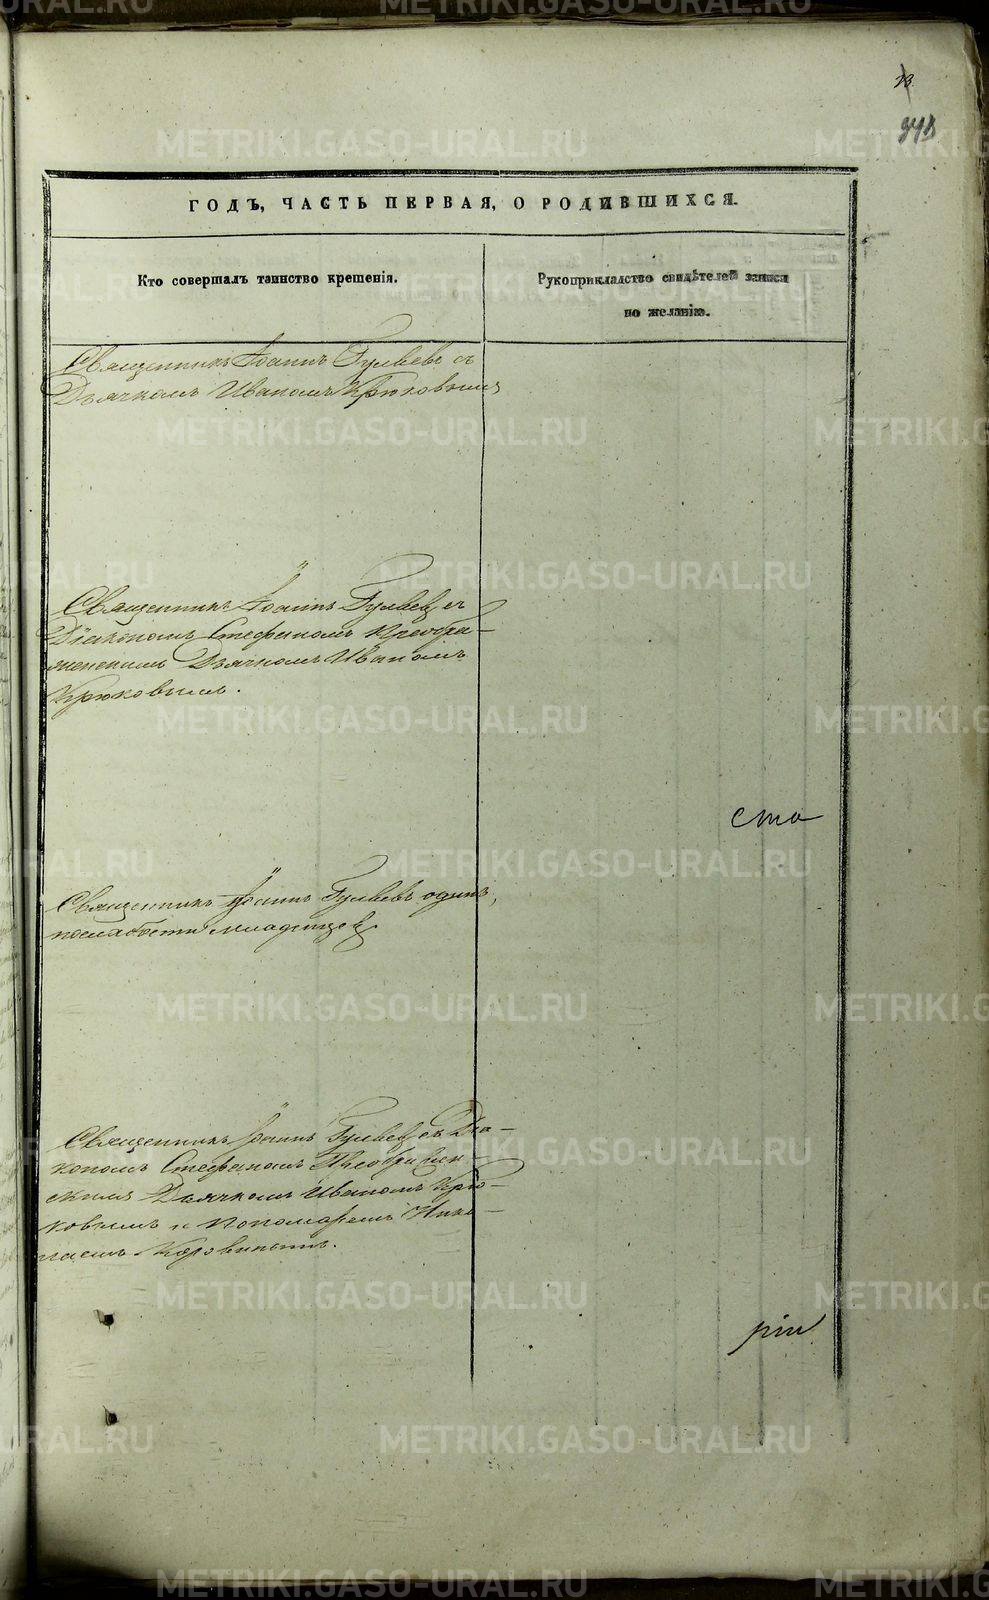 13
ГОДЪ, ЧАСТЬ ПЕРВАЯ, О РОДИВШИХСЯ.
Кто совершалъ таинство крещенія.
Рукоприкладство свидѣтелей записи
по желанію.
Священникъ Іоаннъ Гуляевъ съ
Дьячкомъ Иваномъ Крюковымъ
Священникъ Іоаннъ Гуляевъ съ
Діакономъ Стефаномъ Преобра-
женскимъ Дьячкомъ Иваномъ
Крюковымъ.
ста
Священникъ Іоаннъ Гуляевъ одинъ,
послабости младенцевъ
Священникъ Іоаннъ Гуляевъ съ Діа-
кономъ Стефаномъ Преображен-
скимъ Дьячкомъ Иваномъ Крю-
ковымъ и Пономаремъ Нико-
лаемъ Коровинымъ.
METRIKI.GASO-URAL.RU